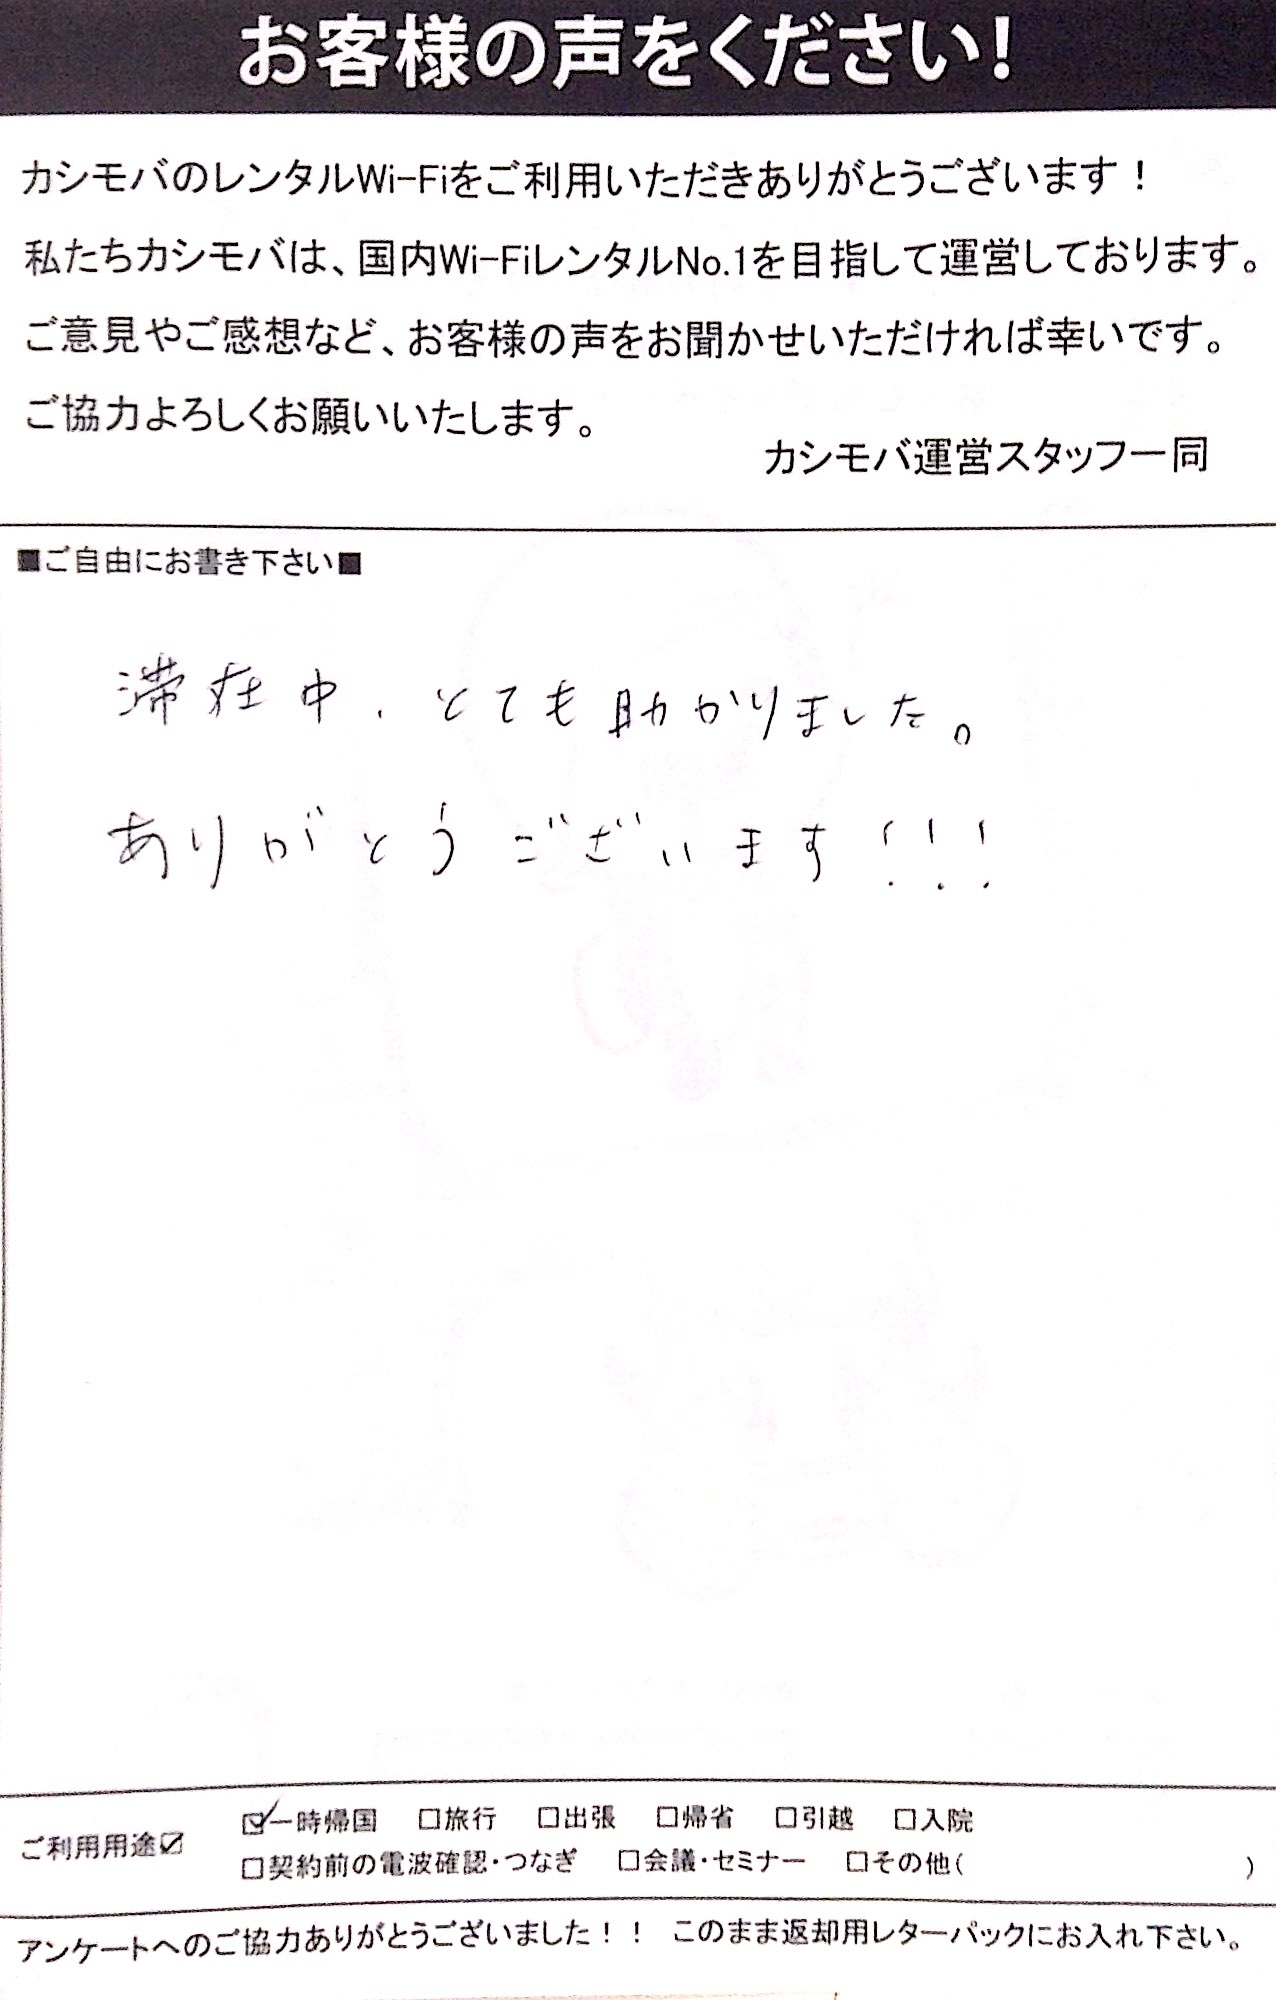 お客様の声をください!
カシモバのレンタルWi-Fiをご利用いただきありがとうございます！
私たちカシモバは、国内Wi-FiレンタルNo.1を目指して運営しております。
ご意見やご感想など、お客様の声をお聞かせいただければ幸いです。
ご協力よろしくお願いいたします。
カシモバ運営スタッフ一同
■ご自由にお書き下さい■
滞在中、とても助かりました。
ありがとうございます!!!
ご利用用途☑ ☑一時帰国 □旅行 □出張 □帰省 □引越 □入院
□契約前の電波確認・つなぎ □会議・セミナー □その他( )
アンケートへのご協力ありがとうございました！！ このまま返却用レターパックにお入れ下さい。